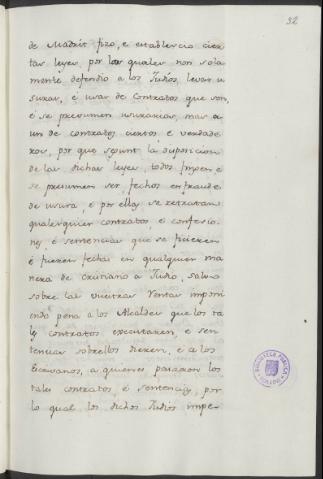 32
de Madrit fizo, e establecio cier
tas leyes, por las quales non sola
mente defendio a los Judios levar u
suras, é usar de contratos que son,
é se presumen usurarios, mas a
un de contratos ciertos e verdade
ros, por que segunt la disposicion
de las dichas leyes, todos
se presumen ser fechos en fraude
de usura, é por ellas se retratan
qualesquier contratos, é confesio
nes, é sentencias que se ficieren
é fueren fechas en qualquier ma
nera de Cristiano a Judio, salvo
sobre las Ventas imponi
endo pena a los Alcaldes que los ta
les contratos executaren, e sen
tencias sobrellos dieren, é a los
Escrivanos, a quienes pasaron los
tales contratos, é sentencias, por
lo qual los dichos Judios impe-
BIBLIOTECA PUBLICA
TOLEDO